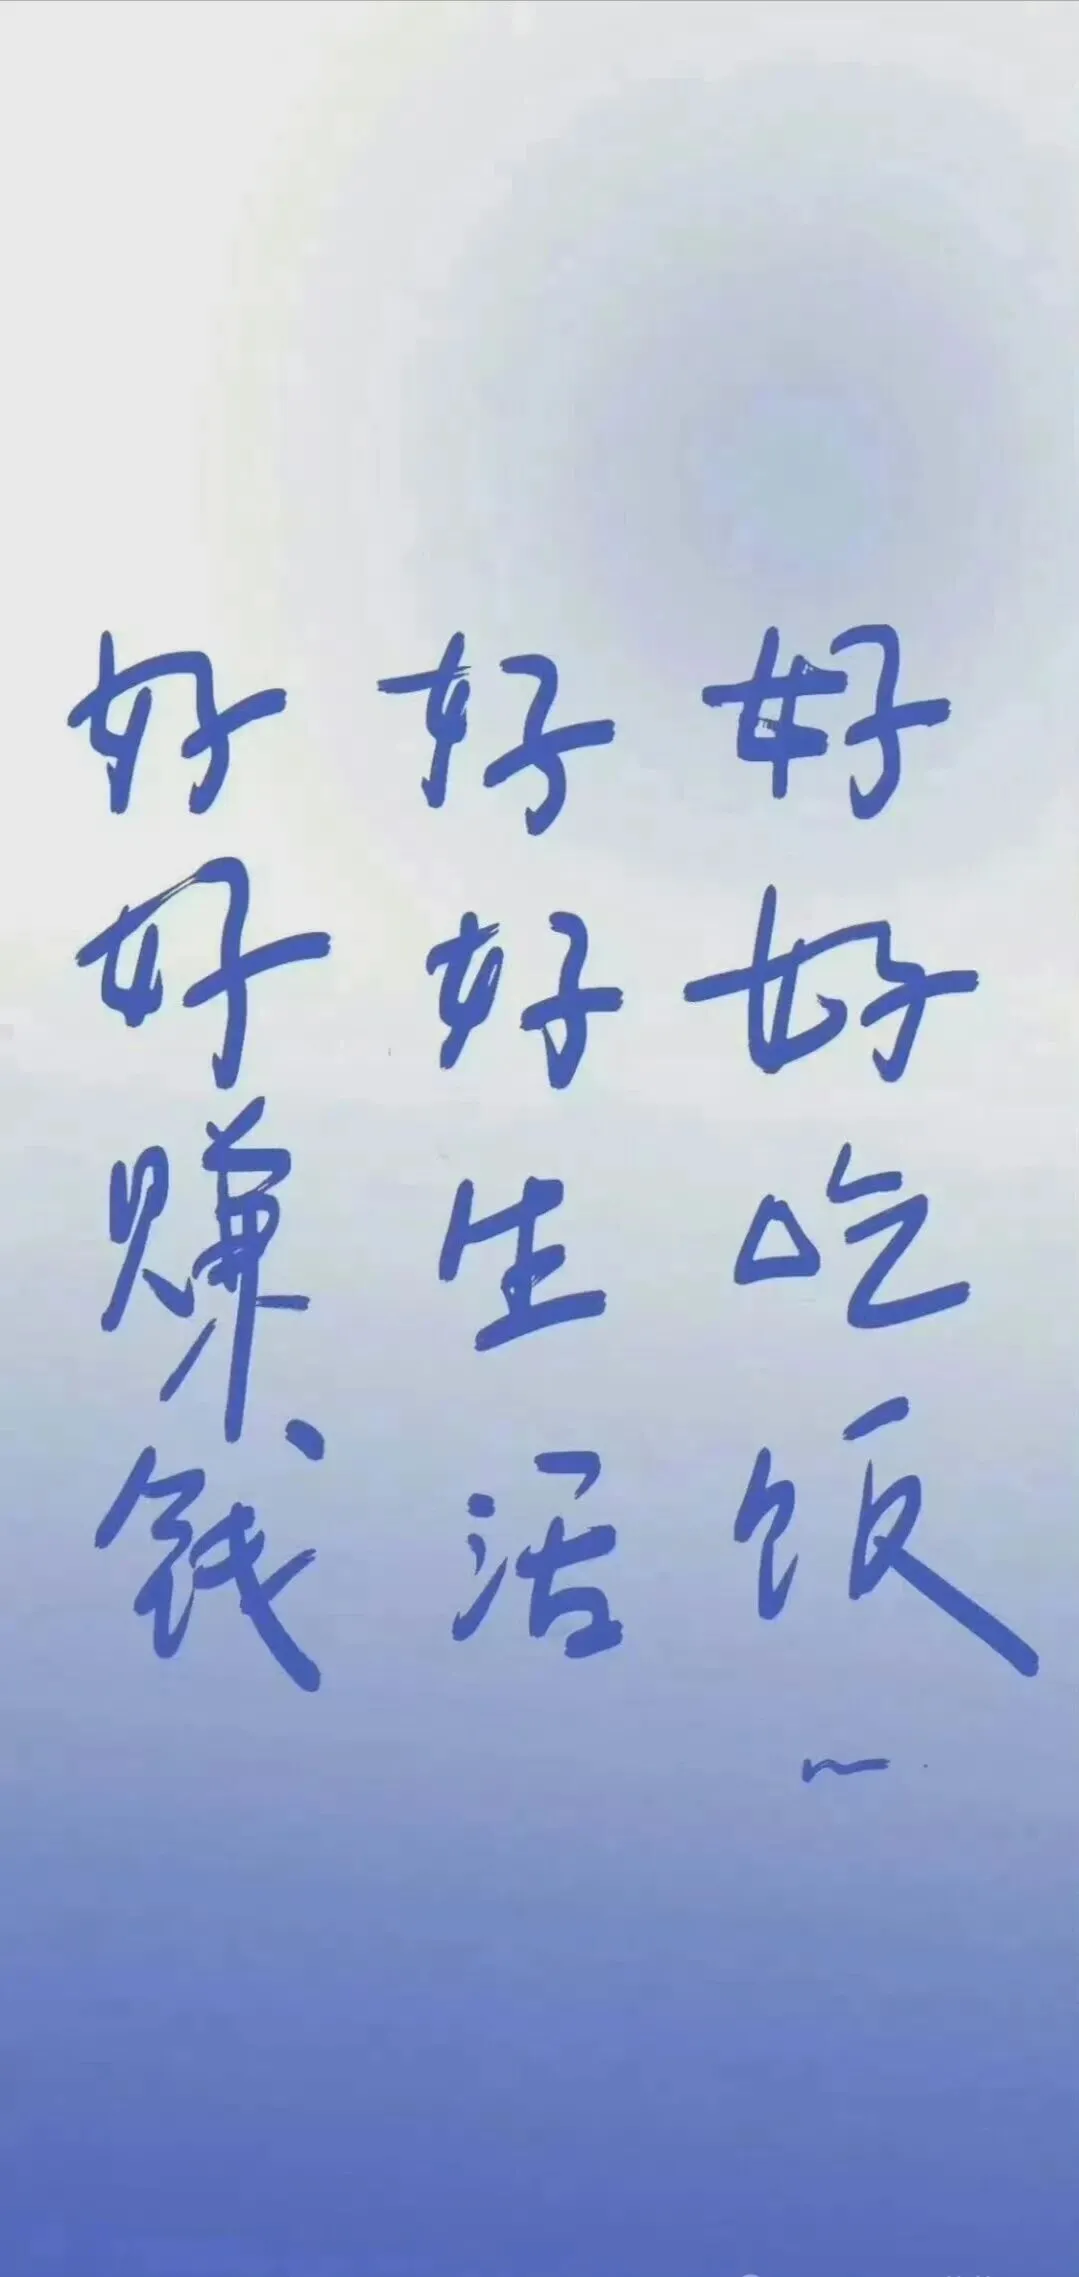 好好吃饭
好好生活
好好赚钱